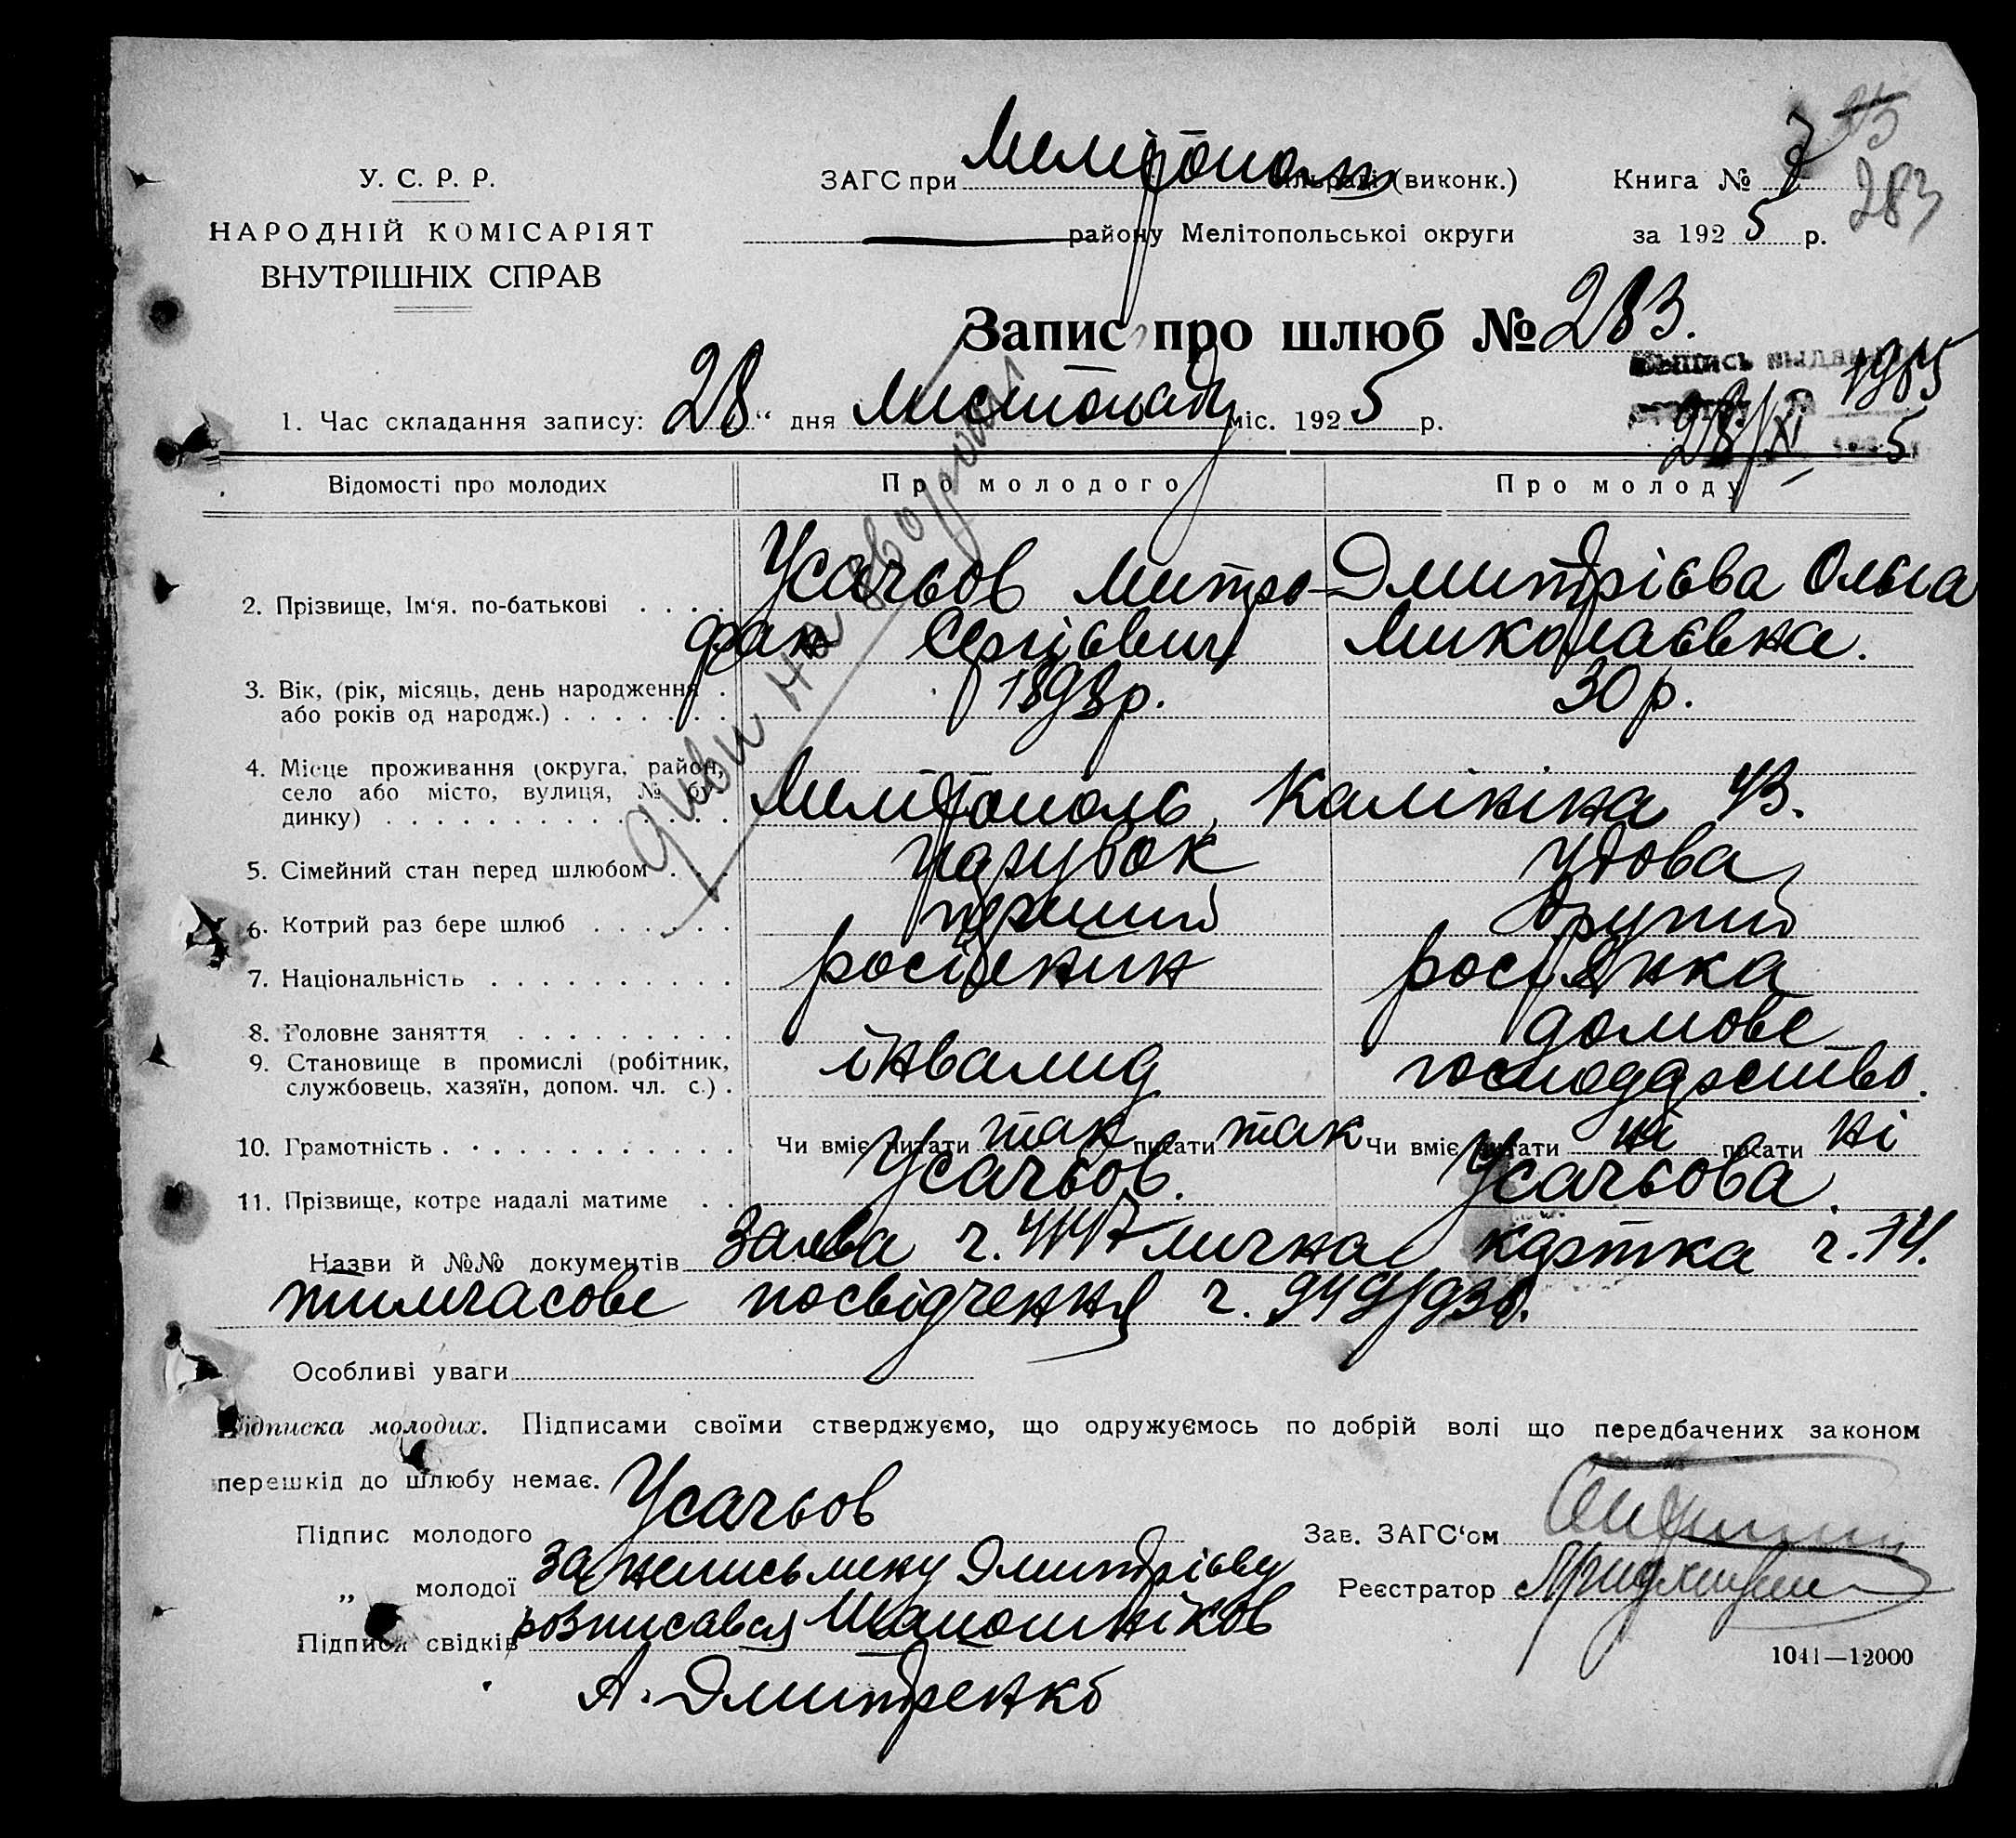 У. С. Р. Р.
НАРОДНІЙ КОМІСАРІЯТ
ВНУТРІШНІХ СПРАВ
ЗАГС при Мелітополь (виконк.)
району Мелітопольської округи
Книга № 7
283
за 1925 р.
Запис про шлюб № 283.
1985
28/XI 5
1. Час складання запису: 28 “ дня листопаду міс. 1925 р.
Відомості про молодих Про молодого Про молоду
2. Прізвище, Ім‘я. по-батькові . . . . Усачьов Митро- Дмитрієва Ольга
фан Сергієвич Миколаєвна.
3. Вік, (рік, місяць, день народження . 1898 р. 30 р.
або років од народж.) . . . . . . .
4. Місце проживання (округа, район,
село або місто, вулиця, № бу-
динку) . . . . . . . . . . . . . Мелітополь, Калініна 43.
5. Сімейний стан перед шлюбом . . . парубок удова
6. Котрий раз бере шлюб . . . . . . перший другий
7. Національність . . . . . . . . . . росіянин росіянка
8. Головне заняття . . . . . . . . . домове
9. Становище в промислі (робітник, інвалид господарство.
службовець, хазяїн, допом. чл. с.) .
10. Грамотність . . . . . . . . . . . . Чи вміє читати так писати так Чи вміє читати ні писати ні
11. Прізвище, котре надалі матиме . . Усачьов. Усачьова.
Назви й №№ документів заява ч. лична картка ч. 74.
тимчасове посвідчення ч.
Особливі уваги
Підписка молодих. Підписами своїми стверджуємо, що одружуємось по добрій волі що передбачених законом
перешкід до шлюбу немає.
Підпис молодого Усачьов
Зав. ЗАГС‘ом
„ молодої за неписьмену Дмитрієву
Реєстратор
Підписи свідків розписався Шапошніков
1041—12000
А. Дмитренко